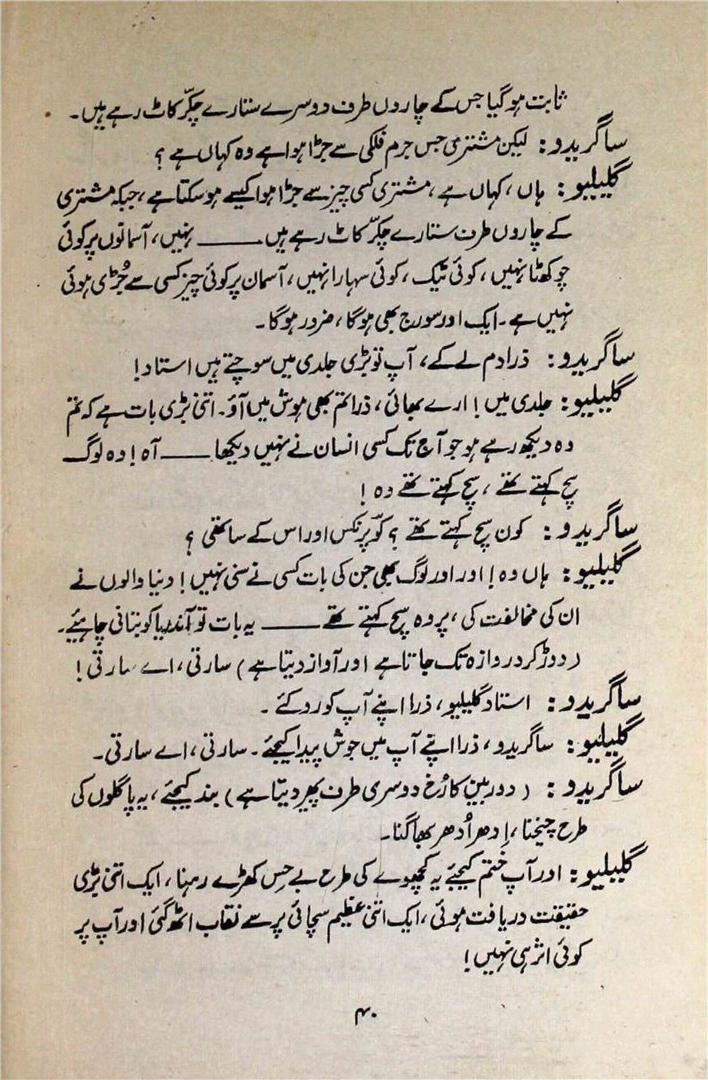 ثابت ہو گیا جس کے چاروں طرف دوسرے ستارے چکّر کاٹ رہے ہیں۔
ساگریدو: لیکن مشتری جس جرم فلکی سے جڑا ہوا ہے وہ کہاں ہے ؟
گلیلیو: ہاں، کہاں ہے، مشتری کسی چیز سے جڑا ہوا کیسے ہو سکتا ہے، جبکہ مشتری
کے چاروں طرف ستارے چکّر کاٹ رہے ہیں ــــــ نہیں، آسمانوں پر کوئی
چوکھٹا نہیں، کوئی ٹیک، کوئی سہارا نہیں، آسمان پر کوئی چیز کسی سے جُڑی ہوئی
نہیں ہے۔ ایک اور سورج بھی ہوگا، ضرور ہوگا۔
ساگریدو: ذرا دم لے کے، آپ تو بڑی جلدی میں سوچتے ہیں استاد!
گلیلیو: جلدی میں! ارے بھائی، ذرا تم بھی ہوش میں آؤ۔ اتنی بڑی بات ہے کہ تم
وہ دیکھ رہے ہو جو آج تک کسی انسان نے نہیں دیکھا ــــــ آہ! وہ لوگ
سچ کہتے تھے، سچ کہتے تھے وہ!
ساگریدو: کون سچ کہتے تھے؟ کوپرنکس اور اس کے ساتھی ؟
گلیلیو: ہاں وہ! اور اور لوگ بھی جن کی بات کسی نے سنی نہیں! دنیا والوں نے
ان کی مخالفت کی، پر وہ سچ کہتے تھے ــــــ یہ بات تو آندریا کو بتانی چاہیئے۔
(دوڑ کر دروازہ تک جاتا ہے اور آواز دیتا ہے) سارتی، اے سارتی!
ساگریدو: استاد گلیلیو، ذرا اپنے آپ کو روکئے۔
گلیلیو: ساگریدو، ذرا اپنے آپ میں جوش پیدا کیجئے۔ سارتی، اے سارتی۔
ساگریدو: (دوربین کا رُخ دوسری طرف پھیر دیتا ہے) بند کیجئے، یہ پاگلوں کی
طرح چیخنا، اِدھر اُدھر بھاگنا۔
گلیلیو: اور آپ ختم کیجئے یہ کچھوے کی طرح بے حِس کھڑے رہنا، ایک اتنی بڑی
حقیقت دریافت ہوئی، ایک اتنی عظیم سچائی پر سے نقاب اٹھ گئی اور آپ پر
کوئی اثر ہی نہیں!
۴۰